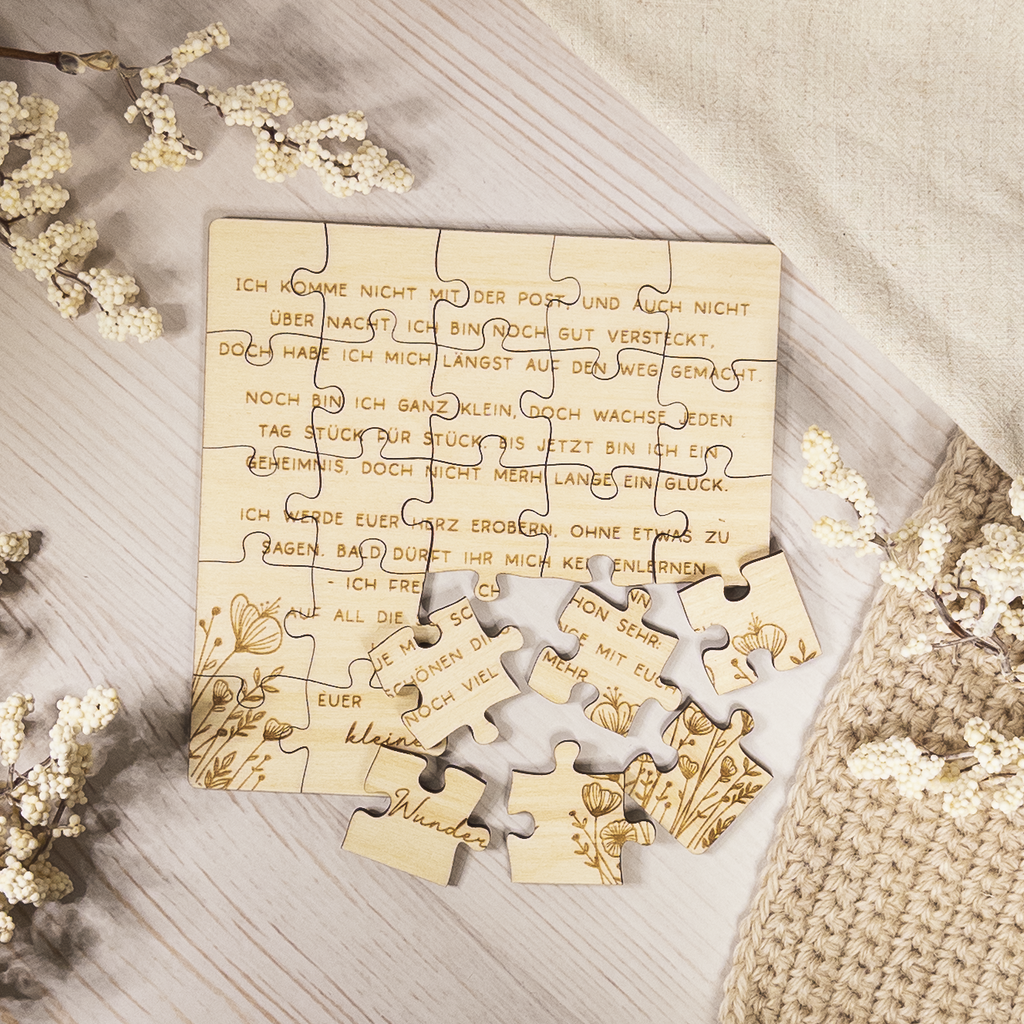 ICH KOMME NICHT MIT DER POST, UND AUCH NICHT
ÜBER NACHT, ICH BIN NOCH GUT VERSTECKT,
DOCH HABE ICH MICH LÄNGST AUF DEN WEG GEMACHT.
NOCH BIN ICH GANZ KLEIN, DOCH WACHSE JEDEN
TAG STÜCK FÜR STÜCK. BIS JETZT BIN ICH EIN
GEHEIMNIS, DOCH NICHT MERH LANGE EIN GLÜCK.
ICH WERDE EUER HERZ EROBERN, OHNE ETWAS ZU
SAGEN. BALD DÜRFT IHR MICH KENNENLERNEN
- ICH FRE CH
AUF ALL DIE
SCHÖNEN DI
NOCH VIEL
HON SEHR.
GE MIT EUCH
MEHR
EUER
kleine
Wunder